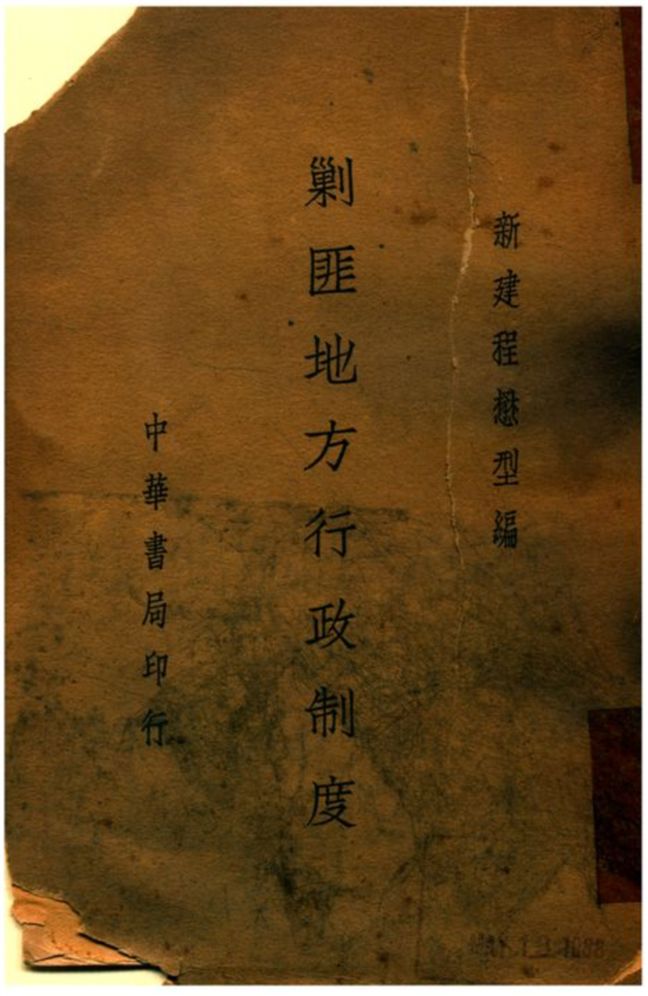 新建程懋型編
剿匪地方行政制度
中華書局印行